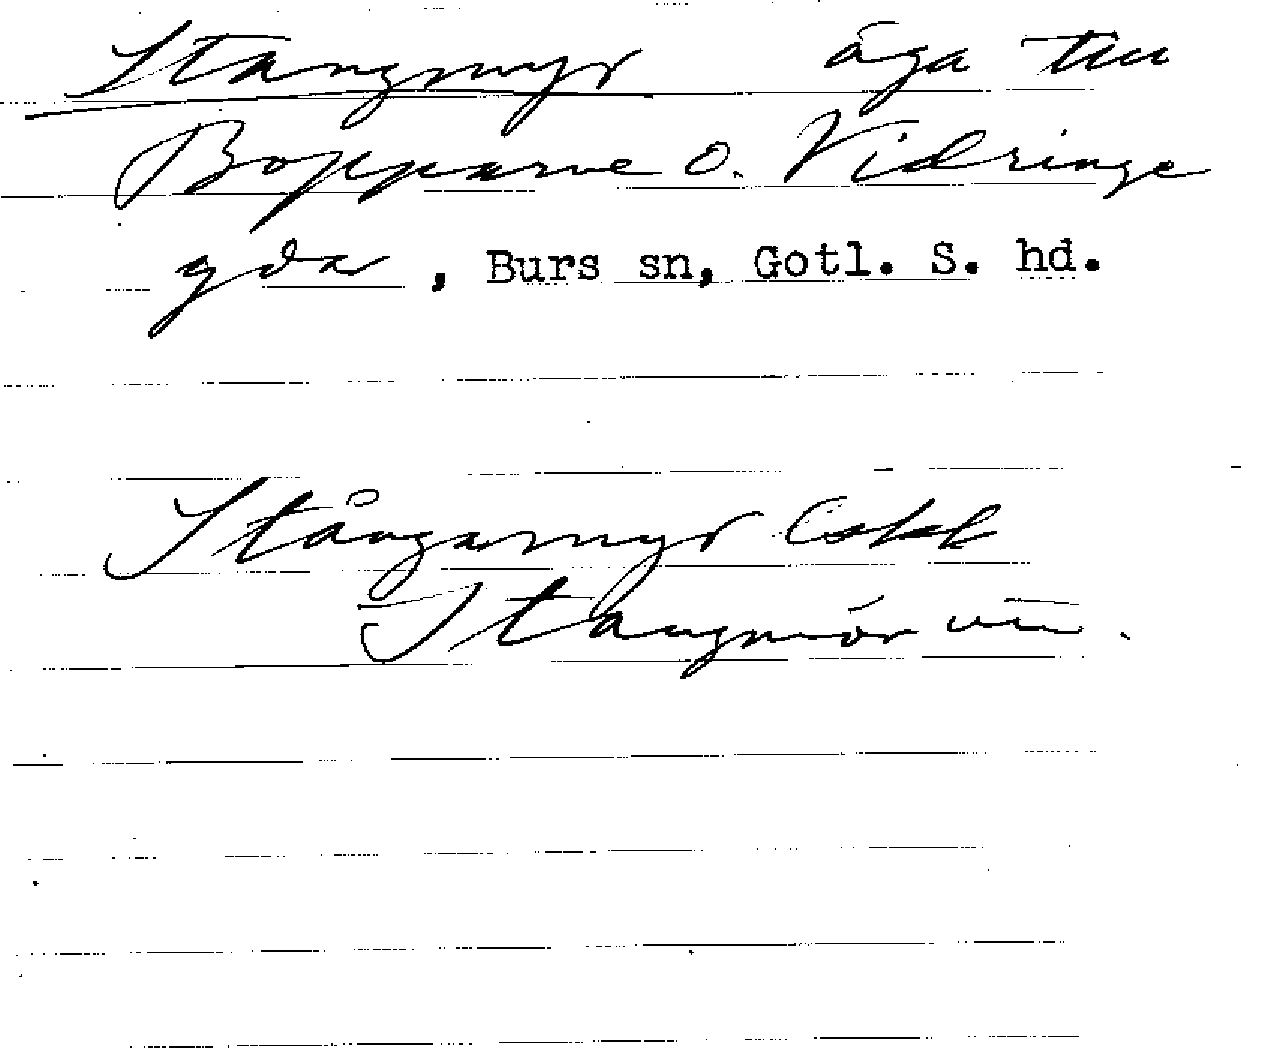 Stangmyr äga till
Bopparve o. Vidringe
gdar, Burs sn, Gotl. S. hd.
Stångarmyr
Stangmör